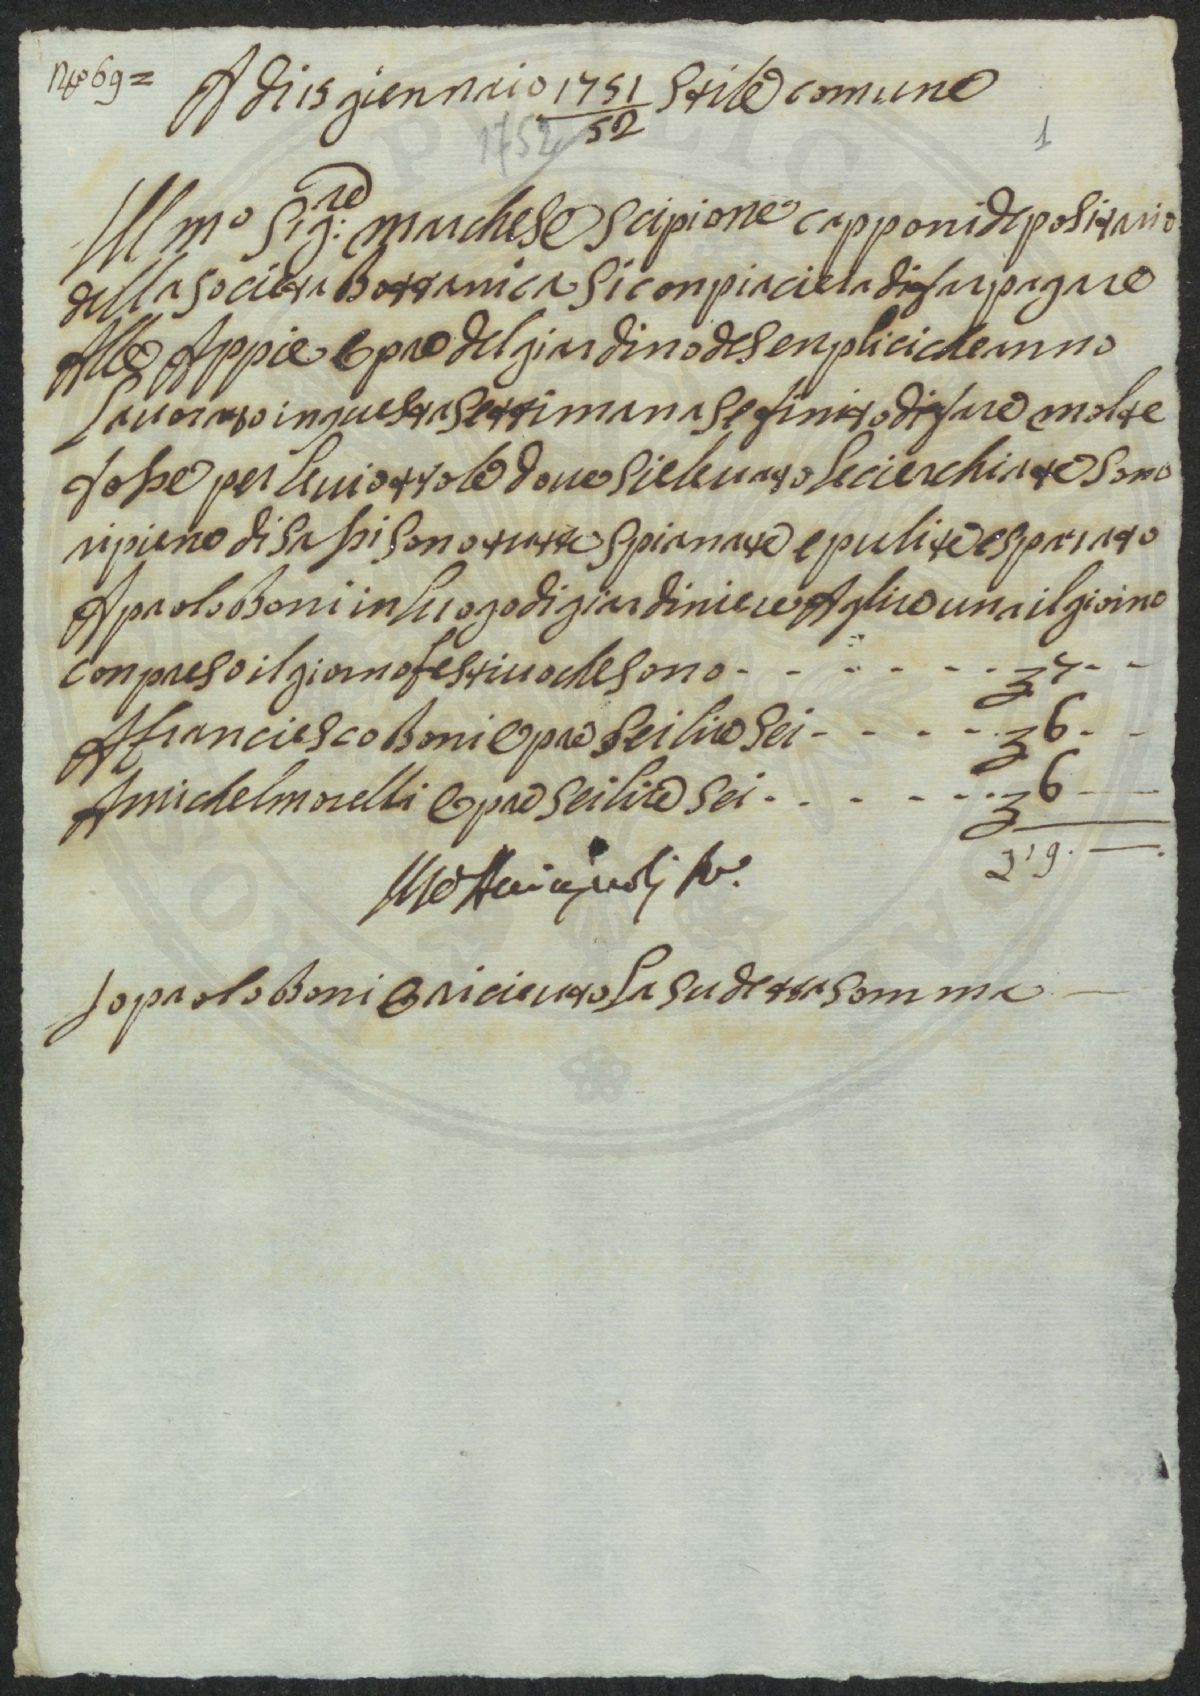 N° 69 =
A di 15 giennaio 1751/52 Stile comune
1752
1
Ill mo Sig:re marchese Scipione capponi depositario
della Societa Bottanica Si conpiaciera di far pagare
Alle Appie e pre del giardino de Senplici che anno
Lauorato in questa Settimana Se finito di fare molte
fosse per le uiottole doue Si e leuato le cierchiate Sono
ripieno di Sassi Sono tutte Spianate e pulite e sparato
A paolo Boni in luogo di giardiniere A lire una il giorno
conpreso il giorno festiuo che sono - - - - - - £ 7 - -
A franciesco Boni e pre Sei lire Sei - - - - - £ 6 - -
A michel morelli e pre Sei lire Sei - - - - - - £ 6 - -
£ 19. —
Io paolo Boni e riceuto la sudetta somma —